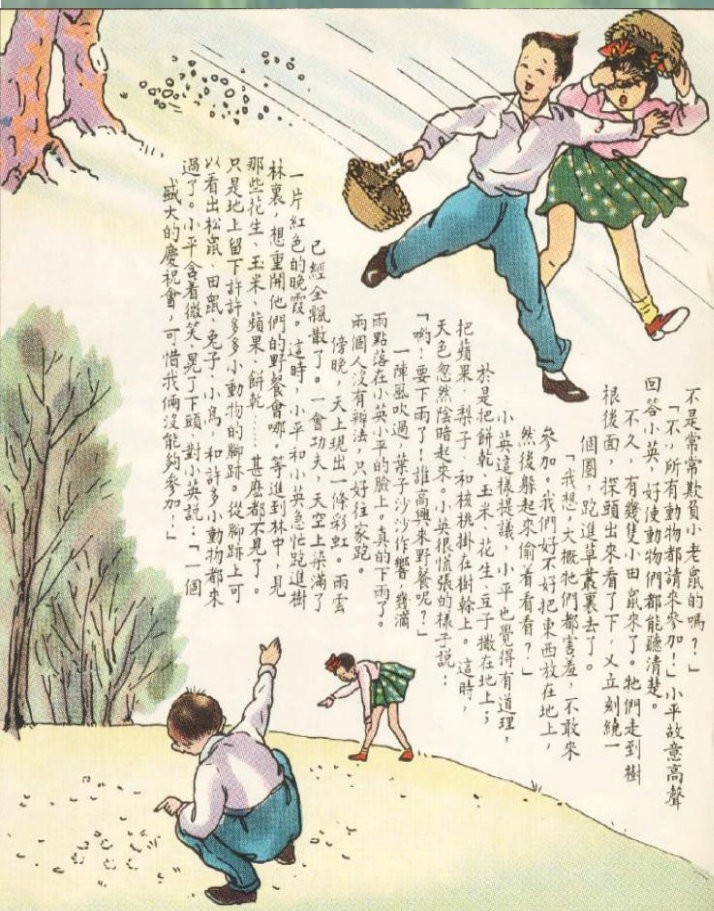 不是常常欺負小老鼠的嗎？」
「不，所有動物都請來參加！」小平故意高聲
回答小英，好使動物們都能聽清楚。
不久，有幾隻小田鼠來了。牠們走到樹
根後面，探頭出來看了下，又立刻繞一
個圈，跑進草叢裏去了。
「我想，大概牠們都害羞，不敢來
參加。我們好不好把東西放在地上，
然後躲起來偷着看看？」
小英這樣提議，小平也覺得有道理，
於是把餅乾、玉米、花生、豆子撒在地上；
把蘋果、梨子、和核桃掛在樹幹上。這時，
天色忽然陰暗起來。小英很慌張的樣子說：
「喲！要下雨了！誰高興來野餐呢？」
一陣風吹過，葉子沙沙作響，幾滴
雨點落在小英小平的臉上，真的下雨了。
兩個人沒有辦法，只好往家跑。
傍晚，天上現出一條彩虹。雨雲
已經全飄散了。一會功夫，天空上染滿了
一片紅色的晚霞。這時，小平和小英急忙跑進樹
林裏，想重開他們的野餐會哪，等進到林中，見
那些花生、玉米、蘋果、餅乾……甚麼都不見了。
只是地上留下許許多多小動物的腳跡。從腳跡上可
以看出松鼠、田鼠、兔子、小鳥，和許多小動物都來
過了。小平含着微笑，晃了下頭，對小英說：「一個
盛大的慶祝會，可惜我倆沒能夠參加！」